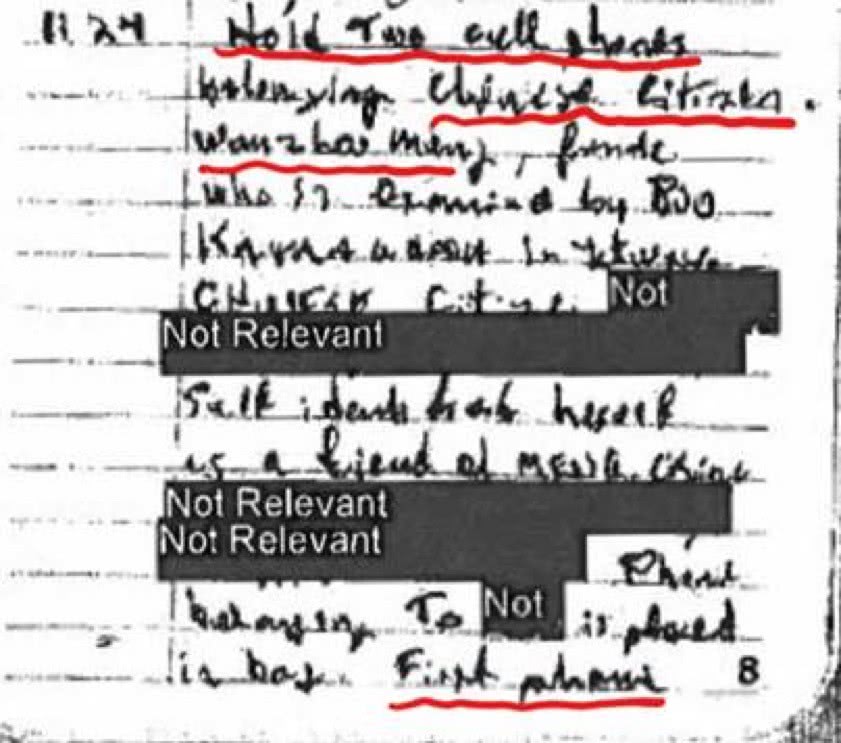 11:24 Hold Two cell phones
belonging Chinese Citizen.
wanzhou Meng,
who is Examined by BSO
in
Chinese Citizen. Not
Not Relevant
Self identifies herself
as a friend of
Not Relevant
Not Relevant
Phone
belonging To Not is placed
in bag. First phone 8